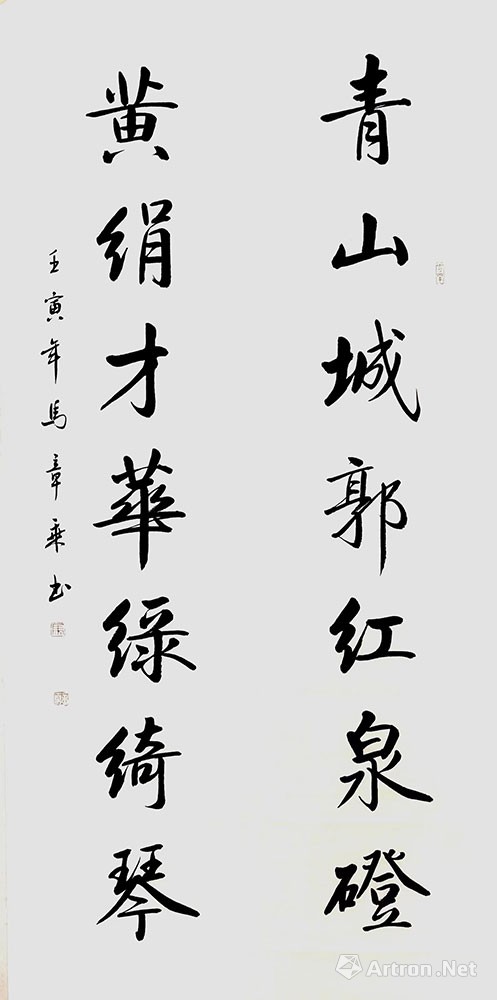 青山城郭红泉磴
黄绢才華绿绮琴
壬寅年馬章乘书
Artron.Net